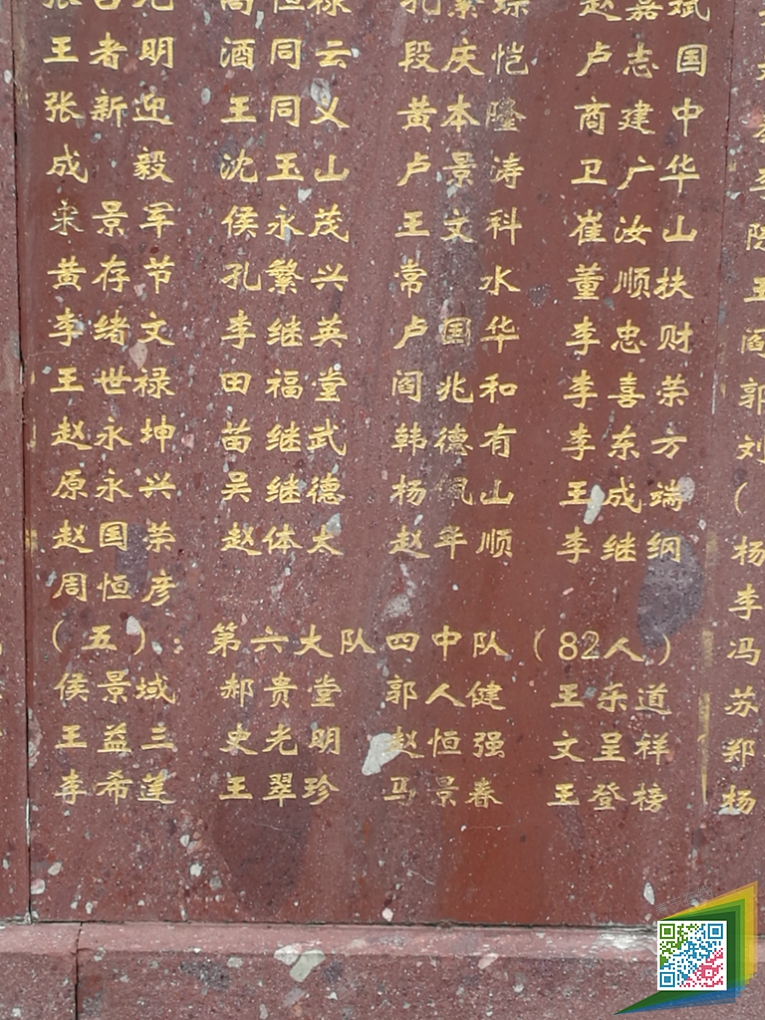 王者明 酒同云 段庆恺 卢志国
张新迎 王同义 黄本隆 商建中
成毅 沈玉山 卢景涛 卫广华
宋景军 侯永茂 王文科 崔汝山
黄存节 孔繁兴 常水 董顺扶
李绪文 李继英 卢国华 李忠财
王世禄 田福堂 阎兆和 李喜荣
赵永坤 苗继武 韩德有 李东方
原永兴 吴继德 杨佩山 王成端
赵国荣 赵体太 赵年顺 李继纲
周恒彦
（五）第六大队四中队（82人）
侯景域 郝贵堂 郭人健 王乐道
王益三 史光明 赵恒强 文呈祥
李希莲 王翠珍 马景春 王登榜
阎
郭
刘
（
杨
李
冯
苏
郑
杨